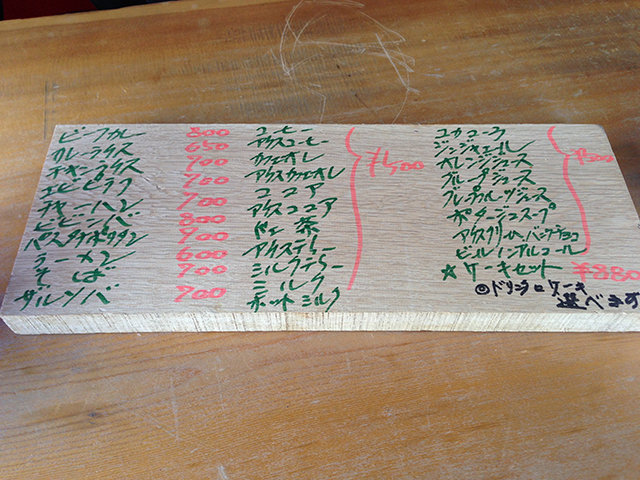 ビーフカレー 800
カレーライス 650
チキンライス 700
エビピラフ 700
チャーハン 700
ビビンバ 800
パスタナポリタン 900
ラーメン 600
そば 700
ザルソバ 700
コーヒー
アイスコーヒー
カフェオレ
アイスカフェオレ
ココア
アイスココア
茶
アイスティー
ミルクティー
ミルク
ホットミルク
¥500
コカコーラ
ジンジャエール
オレンジジュース
グレープジュース
グレープフルーツジュース
ポタージュスープ
アイスクリーム、バニラチョコ
ビールノンアルコール
¥500
★ケーキセット ¥880
◎ドリンクとケーキ
選べます